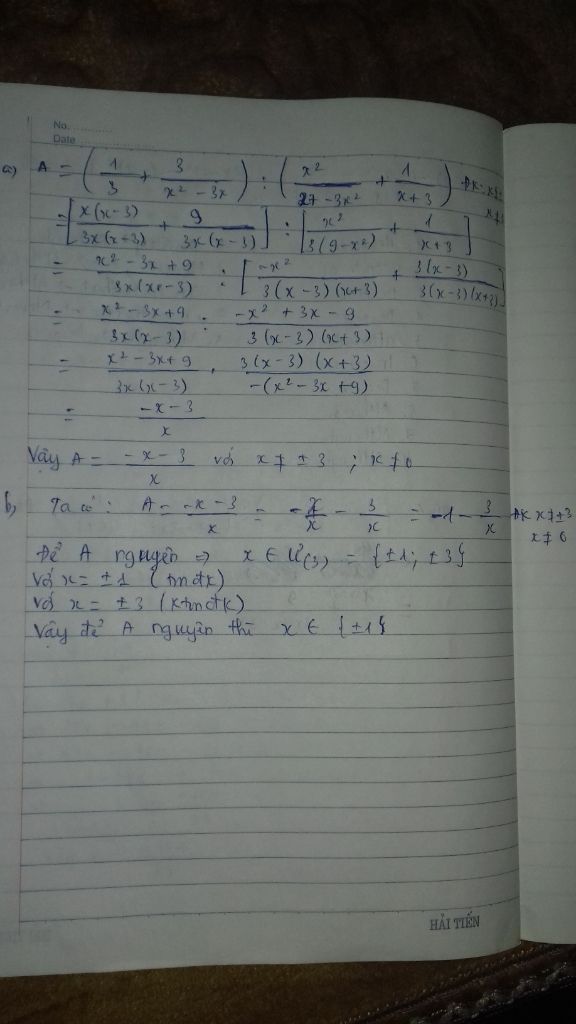 No.
Date
a) A = (1/3 + 3/(x² - 3x)) : (x²/(27 - 3x²) + 1/(x + 3)) ĐK: x ≠ ±
x ≠
= [x(x - 3)/3x(x - 3) + 9/3x(x - 3)] : [x²/3(9 - x²) + 1/(x + 3)]
= (x² - 3x + 9)/3x(x - 3) : [-x²/3(x - 3)(x + 3) + 3(x - 3)/3(x - 3)(x + 3)]
= (x² - 3x + 9)/3x(x - 3) : (-x² + 3x - 9)/3(x - 3)(x + 3)
= (x² - 3x + 9)/3x(x - 3) . 3(x - 3)(x + 3)/-(x² - 3x + 9)
= (-x - 3)/x
Vậy A = (-x - 3)/x với x ≠ ±3 ; x ≠ 0
b) Ta có: A = (-x - 3)/x = -x/x - 3/x = -1 - 3/x ĐK x ≠ ±3
x ≠ 0
Để A nguyên => x ∈ Ư(3) = {±1; ±3}
Với x = ±1 (tmđk)
Với x = ±3 (ktmđk)
Vậy để A nguyên thì x ∈ {±1}
HẢI TIẾN